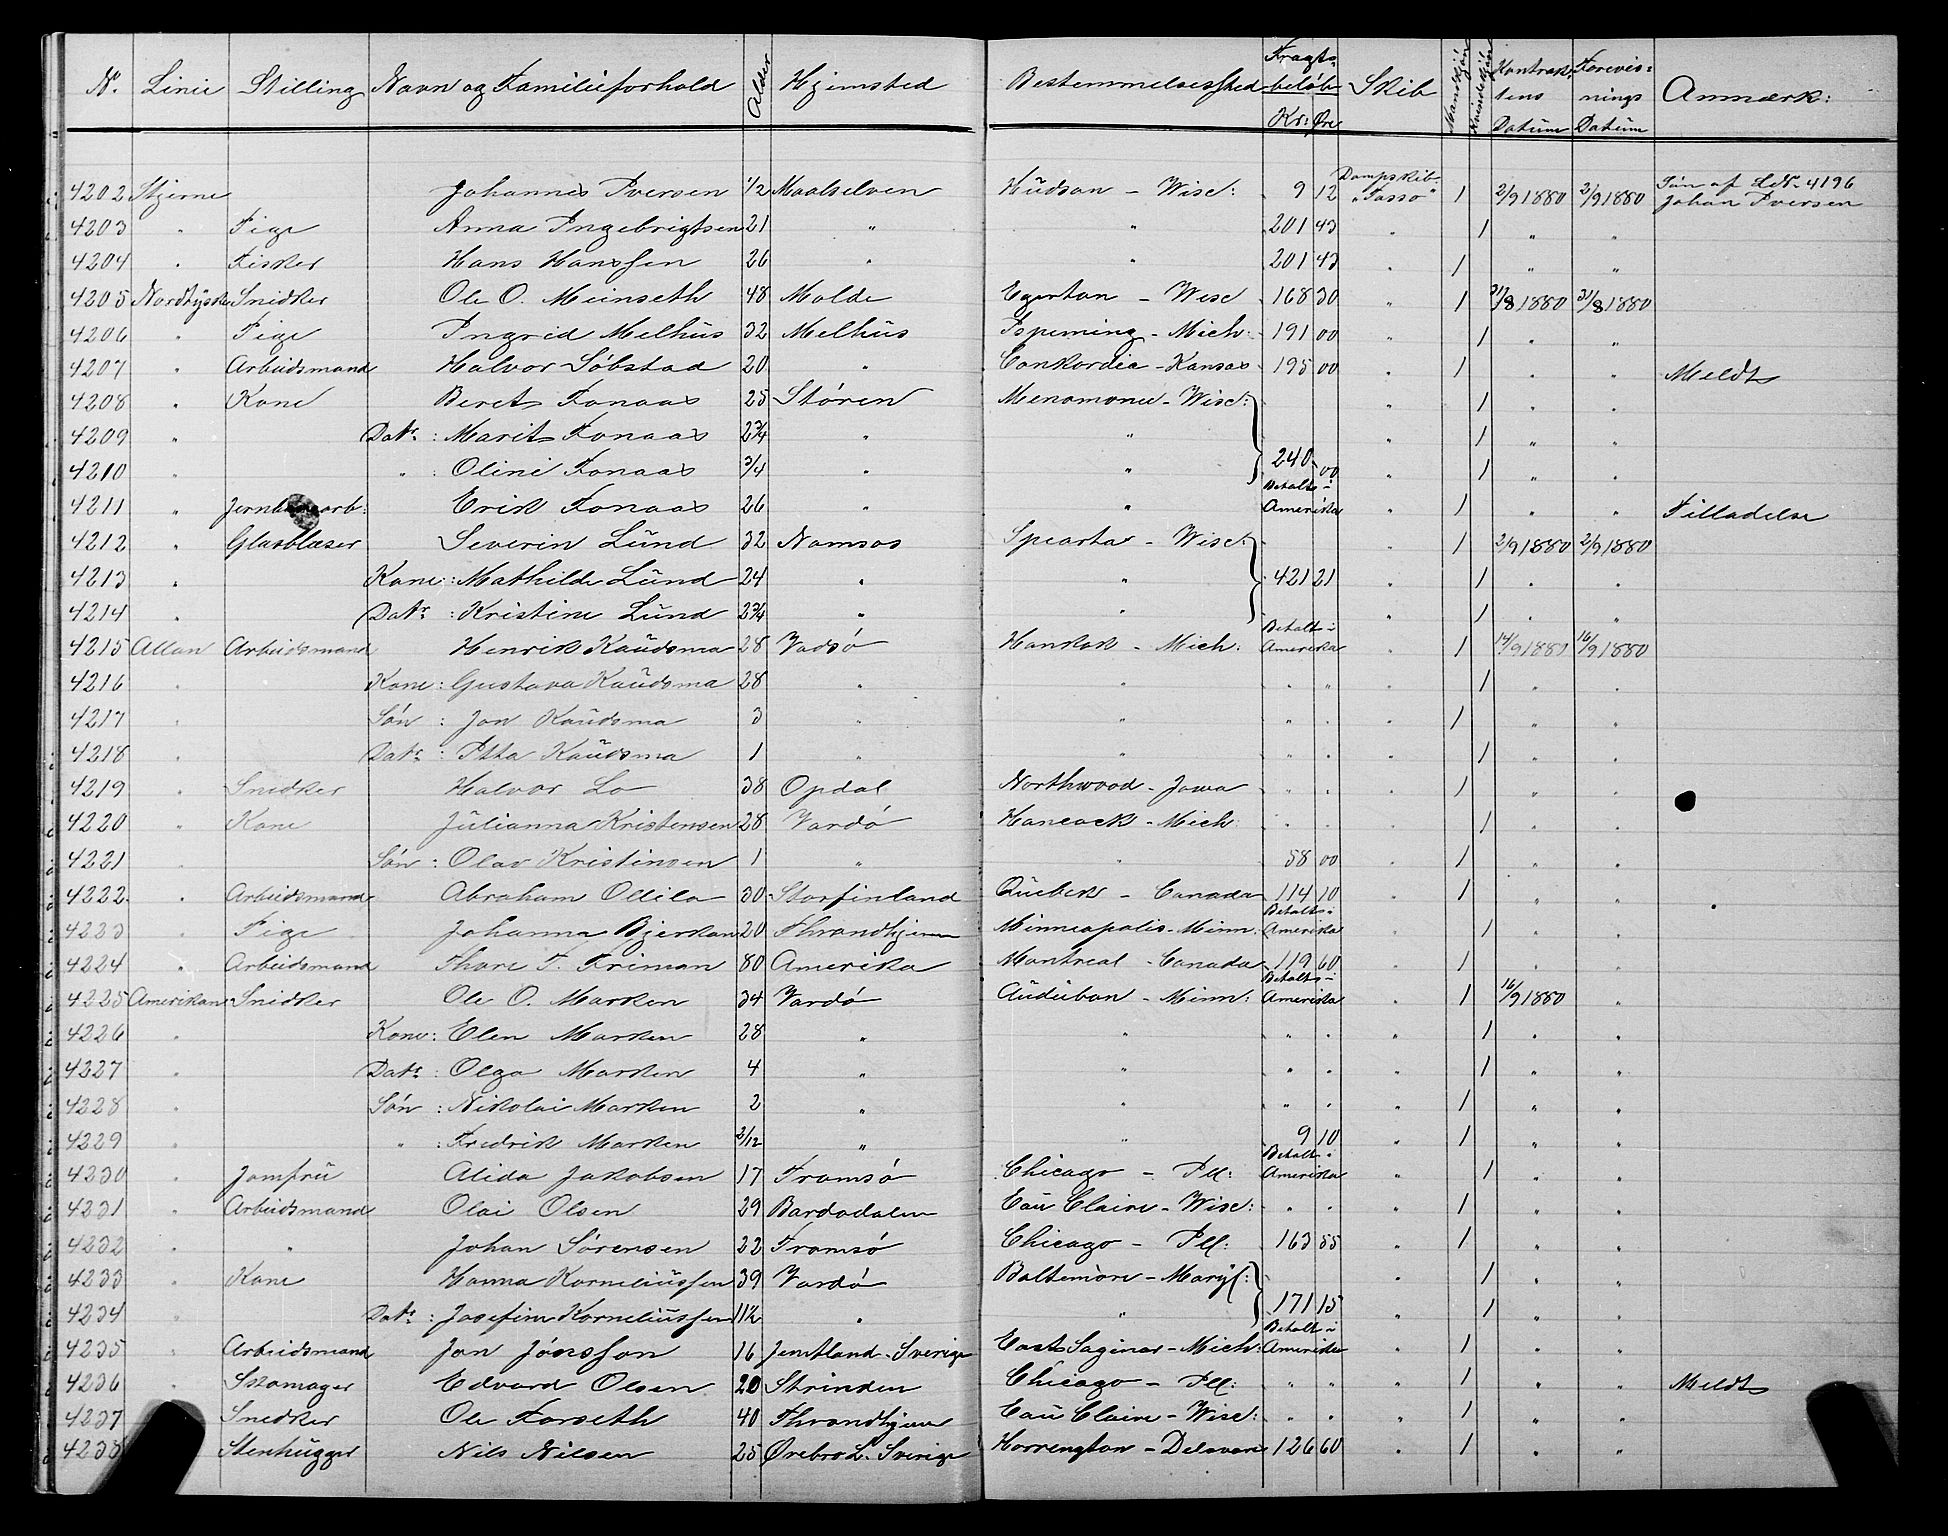 No. Linie Stilling Navn og Familieforhold Alder Hjemsted Bestemmelsessted Fragtbeløb Kr: Øre Skib Mandkjøn Kvindekjøn Kontraktens Datum Forevisnings Datum Anmærk:
4202 Stjerne Johannes Iversen 1/2 Maalselven Hudson - Wisc: 9 12 Dampskib "Tasso" 1 2/9 1880 2/9 1880 Søn af LNr. 4196 Johan Iversen
4203 " Pige Anna Ingebrigtsen 21 " " 201 43 " 1 " "
4204 " Fisker Hans Hanssen 26 " " 201 43 " 1 " "
4205 Nordtyske Snidker Ole O. Meinseth 48 Molde Egerton - Wisc 168 30 " 1 31/8 1880 31/8 1880
4206 " Pige Ingrid Melhus 32 Melhus Ispeming - Mich: 191 00 " 1 " "
4207 " Arbeidsmand Halvor Søbstad 20 " Conkordia - Kansas 195 00 " 1 " " Meldt
4208 " Kone Beret Fonaas 25 Støren Menomonee - Wisc: " 1 " "
4209 " Datr: Marit Fonaas 2 3/4 " " " 1 " "
4210 " " : Oline Fonaas 3/4 " " 240 00 " 1 " "
4211 " Jernbanearb: Erik Fonaas 26 " " Betalt i Amerika " 1 " " Tilladelse
4212 " Glasblæser Severin Lund 32 Namsos Spearta - Wisc: " 1 2/9 1880 2/9 1880
4213 " Kone: Mathilde Lund 24 " " 421 21 " 1 " "
4214 " Datr: Kristine Lund 2 3/4 " " " 1 " "
4215 Allan Arbeidsmand Henrik Kaudsma 28 Vadsø Hankok - Mich: Betalt i Amerika " 1 14/9 1880 16/9 1880
4216 " Kone: Gustava Kaudsma 28 " " " " 1 " "
4217 " Søn: Jon Kaudsma 3 " " " " " 1 " "
4218 " Datr: Itta Kaudsma 1 " " " " 1 " "
4219 " Snidker Halvor Lo 38 Opdal Northwood - Jowa " " " 1 " "
4220 " Kone Julianna Kristensen 28 Vardø Hancock - Mich: " " 1 " "
4221 " Søn: Olav Kristinsen 1 " " 58 00 " 1 " "
4222 " Arbeidsmand Abraham Ollila 30 Storfinland Quebek - Canada 114 10 " 1 " "
4223 " Pige Johanna Bjerkan 20 Throndhjem Minneapolis - Minn: Betalt i Amerika " 1 " "
4224 " Arbeidsmand Thore T. Friman 80 Amerika Montreal - Canada 119 60 " 1 " "
4225 Amerikan Snidker Ole O. Marken 34 Vardø Auduban - Minn: Betalt i Amerika " 1 16/9 1880 "
4226 " Kone: Elen Marken 28 " " " " " 1 " "
4227 " Datr: Olga Marken 4 " " " " " 1 " "
4228 " Søn: Nikolai Marken 2 " " " " " 1 " "
4229 " " : Fredrik Marken 2/12 " " 9 10 " 1 " "
4230 " Jomfru Alida Jakobsen 17 Tromsø Chicago - Ill: Betalt i Amerika " 1 " "
4231 " Arbeidsmand Olai Olsen 29 Bardodalen Eau Claire - Wisc: " " " 1 " "
4232 " " Johan Sørensen 22 Tromsø Chicago - Ill: 163 55 " 1 " "
4233 " Kone Hanna Korneliussen 39 Vardø Baltemore - Maryl: " 1 " "
4234 " Datr: Josefine Korneliussen 11 1/2 " " 171 15 " 1 " "
4235 " Arbeidsmand Jon Jónsson 16 Jemtland - Sverige East Saginas - Mich: Betalt i Amerika " 1 " "
4236 " Skomager Edvard Olsen 20 Strinden Chicago - Ill: " " " 1 " " Meldt
4237 " Snedker Ole Forseth 40 Throndhjem Eau Claire - Wisc: " " " 1 " "
4238 Stenhugger Nils Nilsen 25 Ørebro L. Sverige Horrengton - Delavare 126 60 " 1 " "